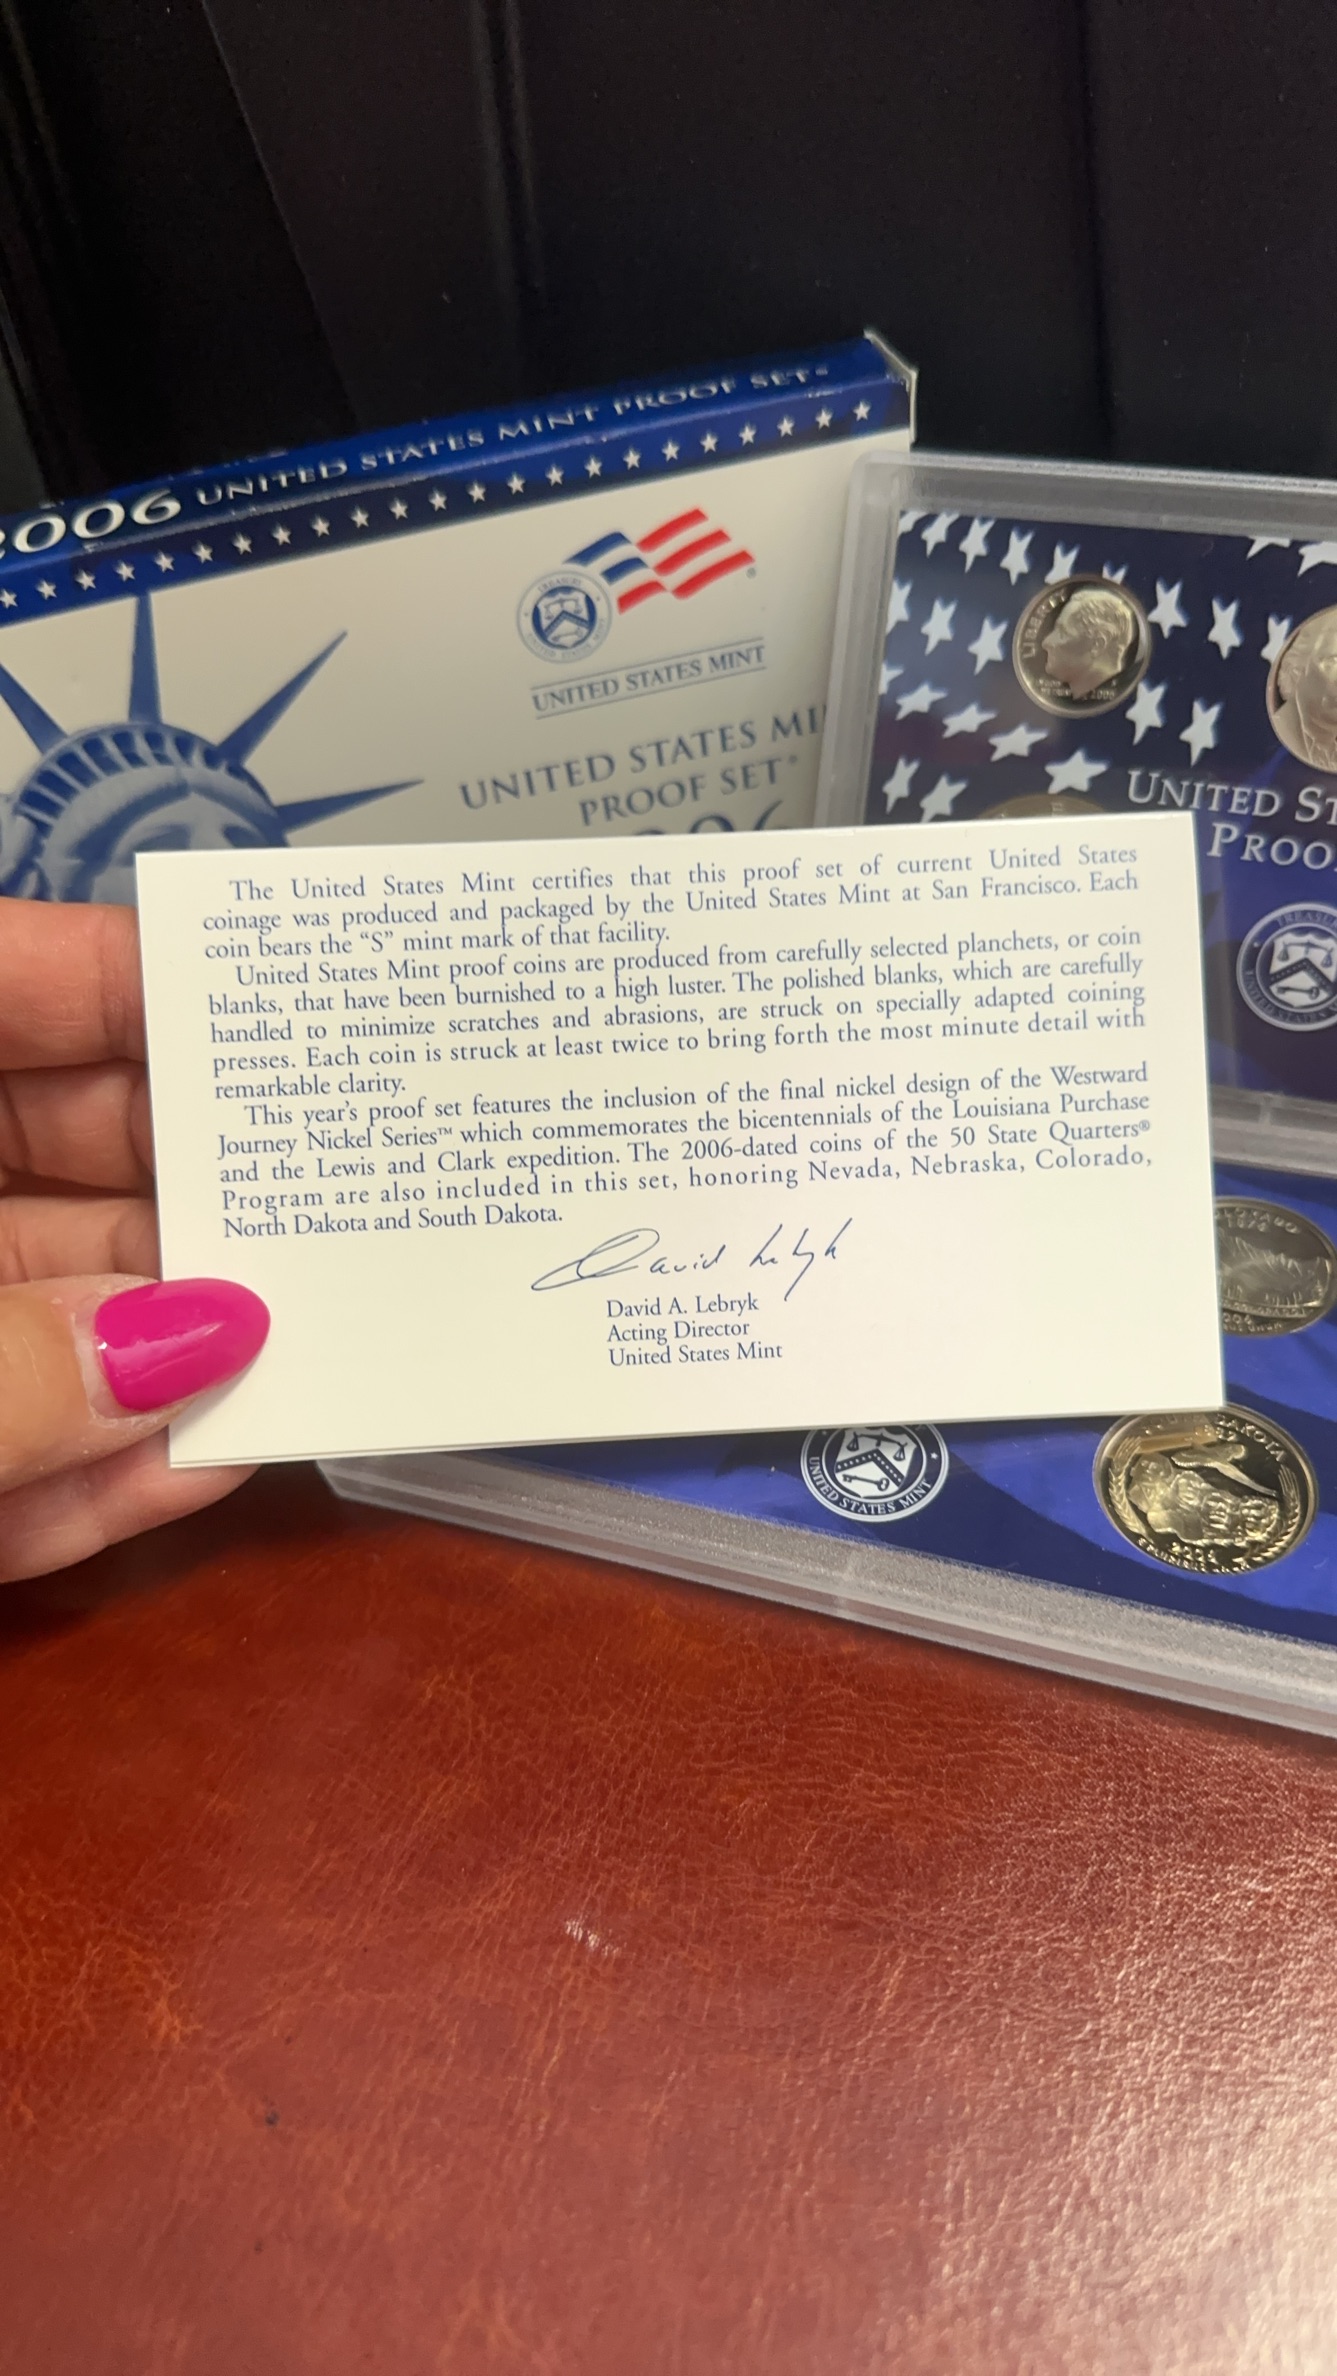 2006 UNITED STATES MINT PROOF SET
UNITED STATES MINT
UNITED STATES MI
PROOF SET
LIBERTY
2006
UNITED ST
PROO
The United States Mint certifies that this proof set of current United States
coinage was produced and packaged by the United States Mint at San Francisco. Each
coin bears the “S” mint mark of that facility.
United States Mint proof coins are produced from carefully selected planchets, or coin
blanks, that have been burnished to a high luster. The polished blanks, which are carefully
handled to minimize scratches and abrasions, are struck on specially adapted coining
presses. Each coin is struck at least twice to bring forth the most minute detail with
remarkable clarity.
This year's proof set features the inclusion of the final nickel design of the Westward
Journey Nickel Series™ which commemorates the bicentennials of the Louisiana Purchase
and the Lewis and Clark expedition. The 2006-dated coins of the 50 State Quarters®
Program are also included in this set, honoring Nevada, Nebraska, Colorado,
North Dakota and South Dakota.
David Lebryk
David A. Lebryk
Acting Director
United States Mint
UNITED STATES MINT
DAKOTA
2006